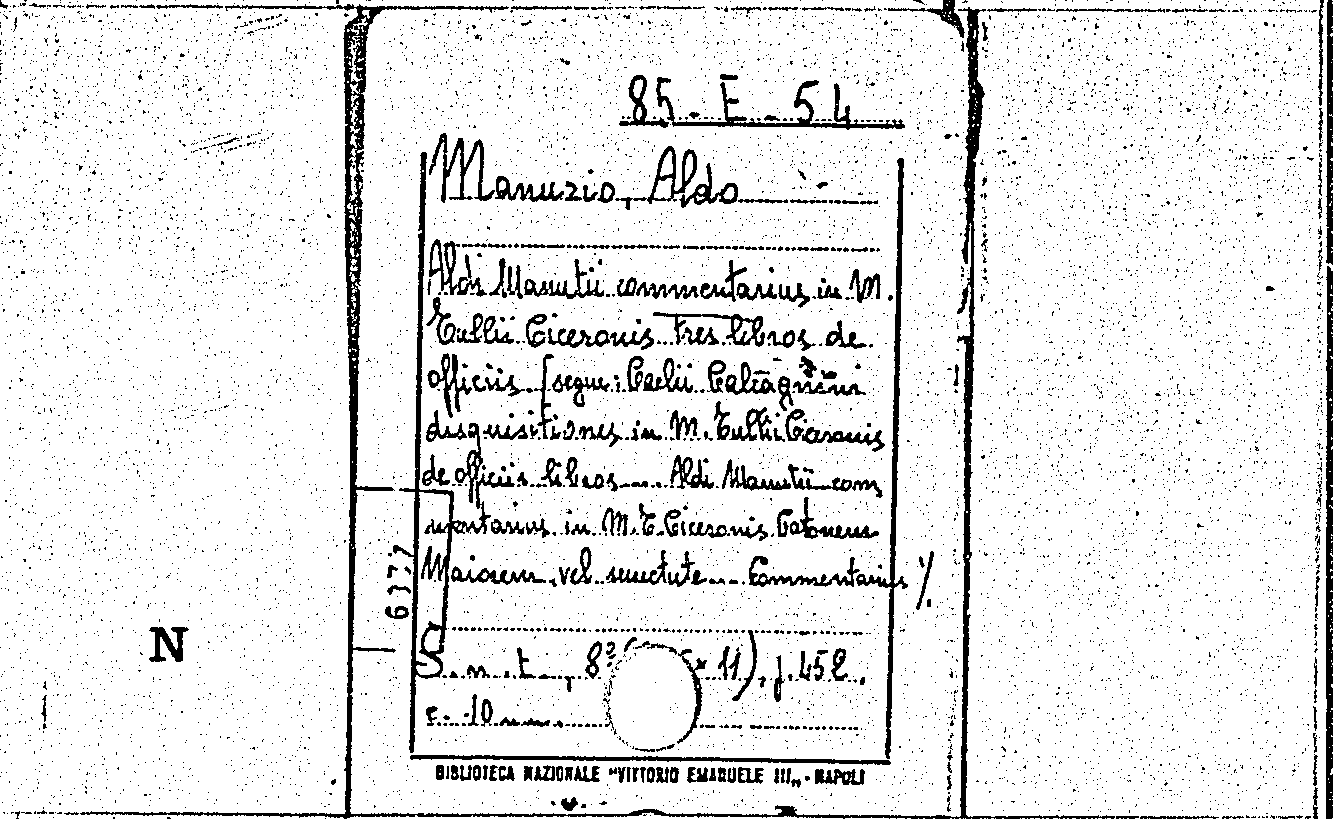 85 - E - 54
Manuzio, Aldo
Aldi Manutii commentarius in M.
Tullii Ciceronis tres libros de
officiis [segue: Caelii Calcagnini
disquisitiones in M. Tullii Ciceronis
de officiis libros... Aldi Manutii com
mentarius in M. T. Ciceronis Catonem
Maiorem, vel senectute... Commentarius %
6377
N
S. n. t., 8° × 11), p. 452.
c. 10
BIBLIOTECA NAZIONALE "VITTORIO EMANUELE III„ - NAPOLI